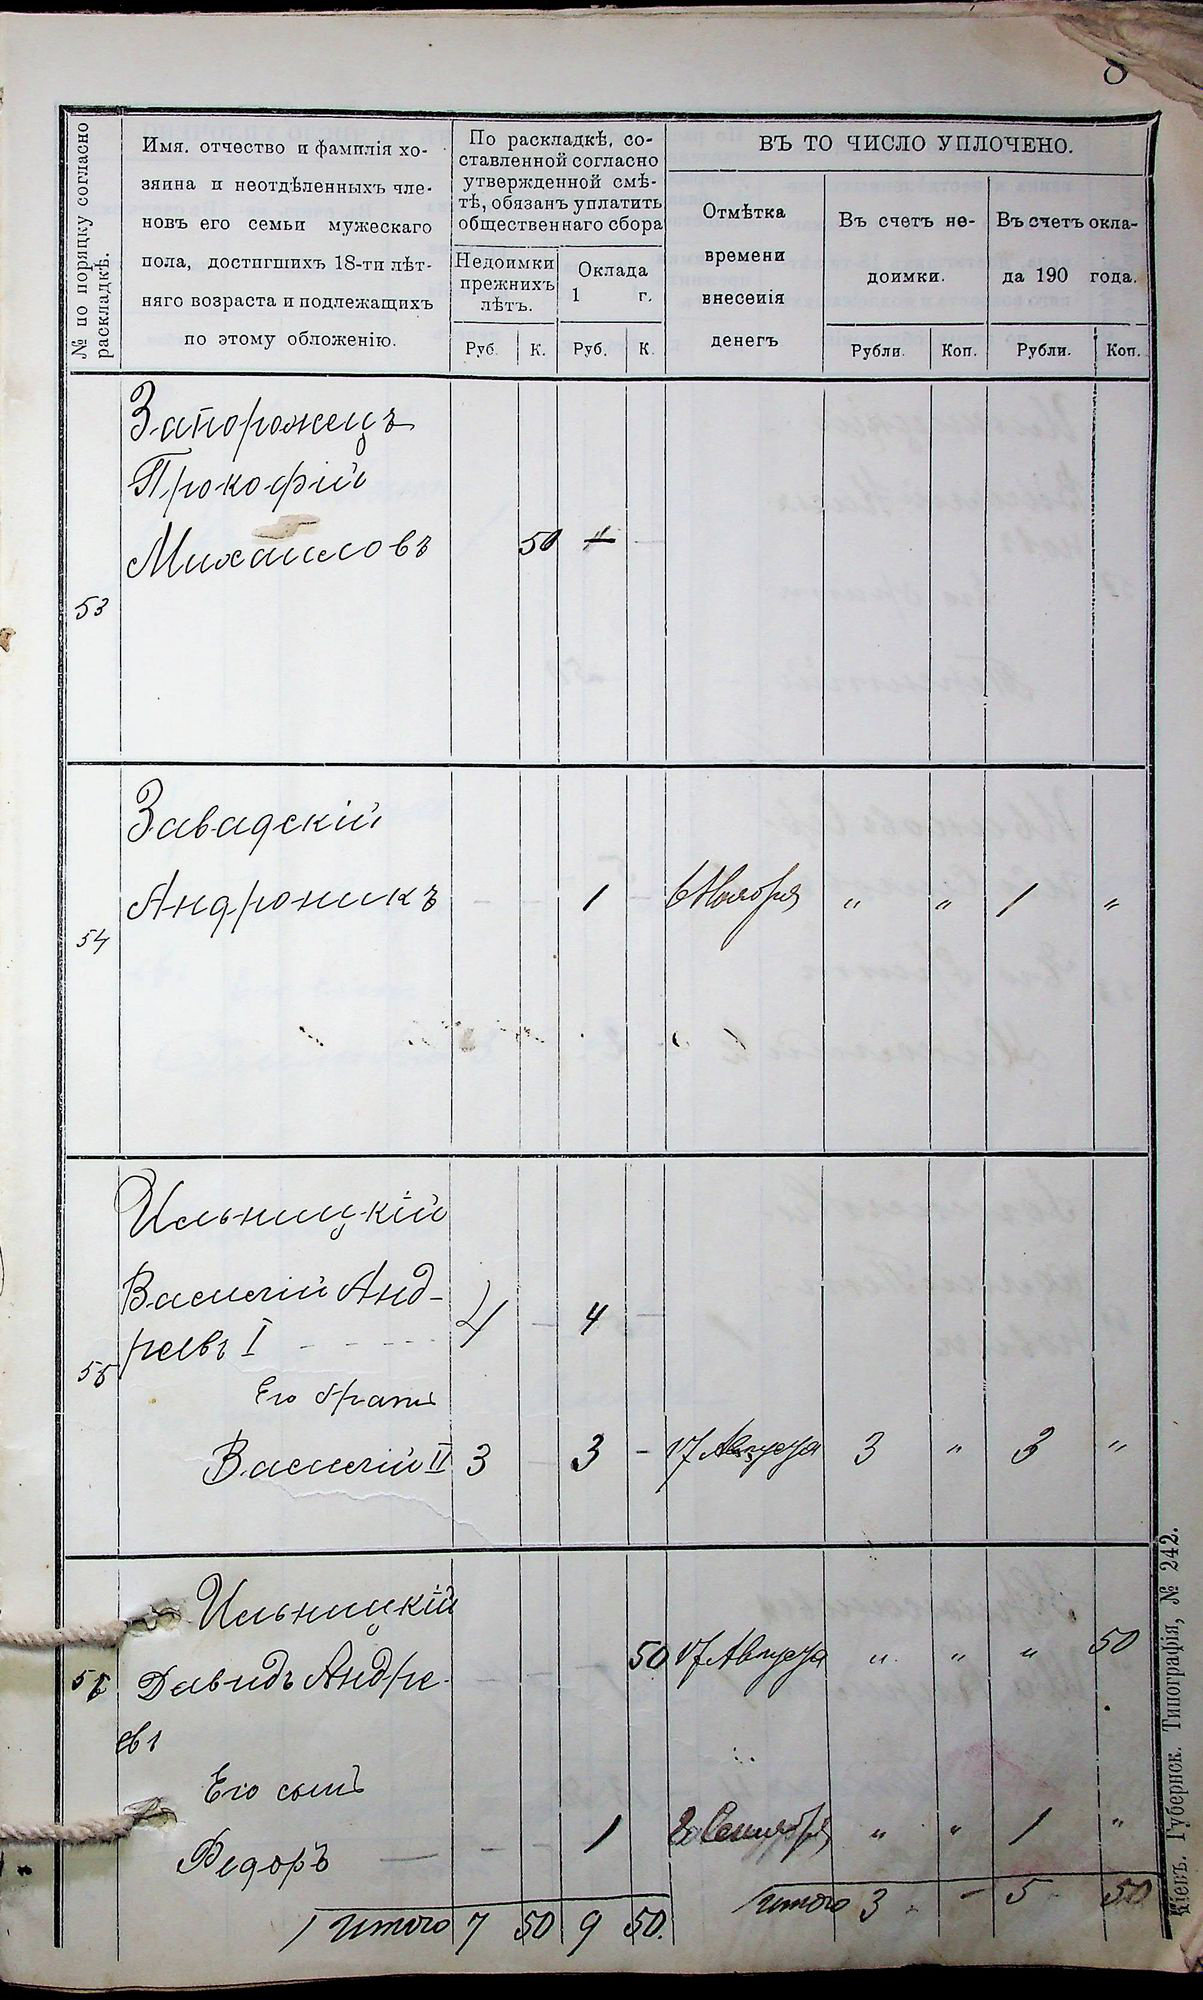 8
№ по порядку согласно раскладкѣ.
Имя, отчество и фамилія хо-
зяина и неотдѣленныхъ чле-
новъ его семьи мужескаго
пола, достигшихъ 18-ти лѣт-
няго возраста и подлежащихъ
по этому обложенію.
По раскладкѣ, со-
ставленной согласно
утвержденной смѣ-
тѣ, обязанъ уплатить
общественнаго сбора
Недоимки
прежнихъ
лѣтъ.
Оклада
1 г.
Руб. К. Руб. К.
ВЪ ТО ЧИСЛО УПЛОЧЕНО.
Отмѣтка
времени
внесенія
денегъ
Въ счетъ не-
доимки.
Въ счетъ окла-
да 190 года.
Рубли. Коп. Рубли. Коп.
Запорожецъ
Прокофій
Михаиловъ 50 „ —
53
Завадскій
Андроникъ - - - 1 - 6 Ноября „ „ 1 „
54
Ильницкій
Василій Анд-
реевъ I - - - - 4 - 4 -
55
Его братъ
Василій II 3 - 3 - 17 Августа 3 „ 3 „
Ильницкій
50 17 Августа „ „ „ 50
56 Давидъ Андре-
евъ
Его сынъ
Федоръ — - - 1 8 Сентября „ „ 1 „
Итого 7 50 9 50. Итого 3 - 5 50
Кіевъ. Губернск. Типографія, № 242.